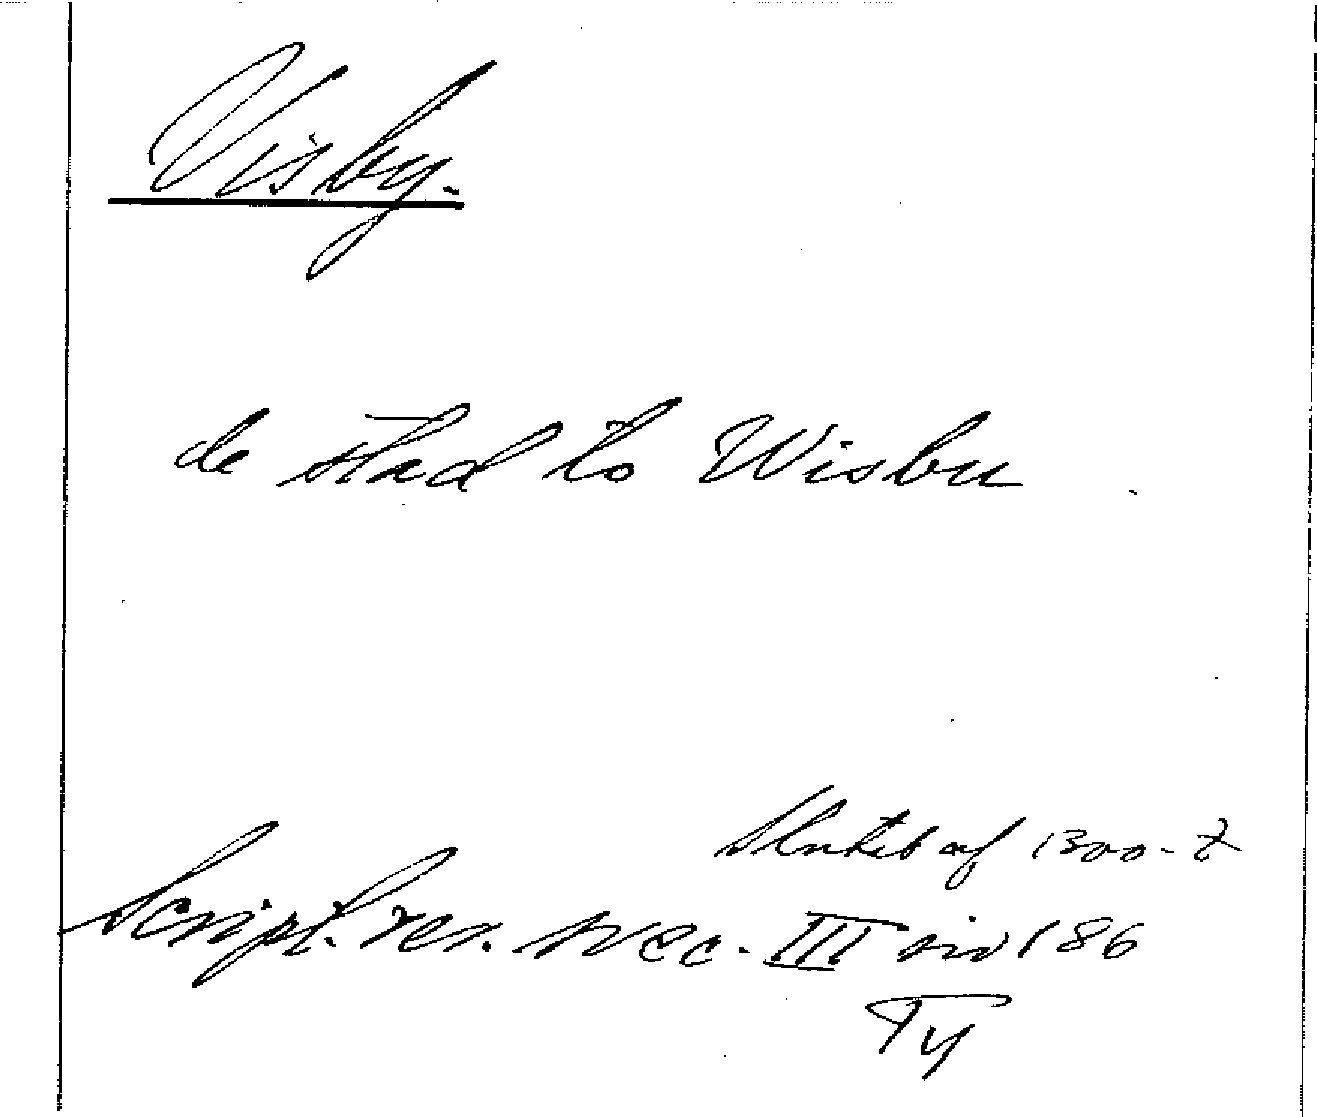 Visby.
de stad to Wisbu
Slutet af 1300-t
Script. rer. svec. III sid 186
Ty